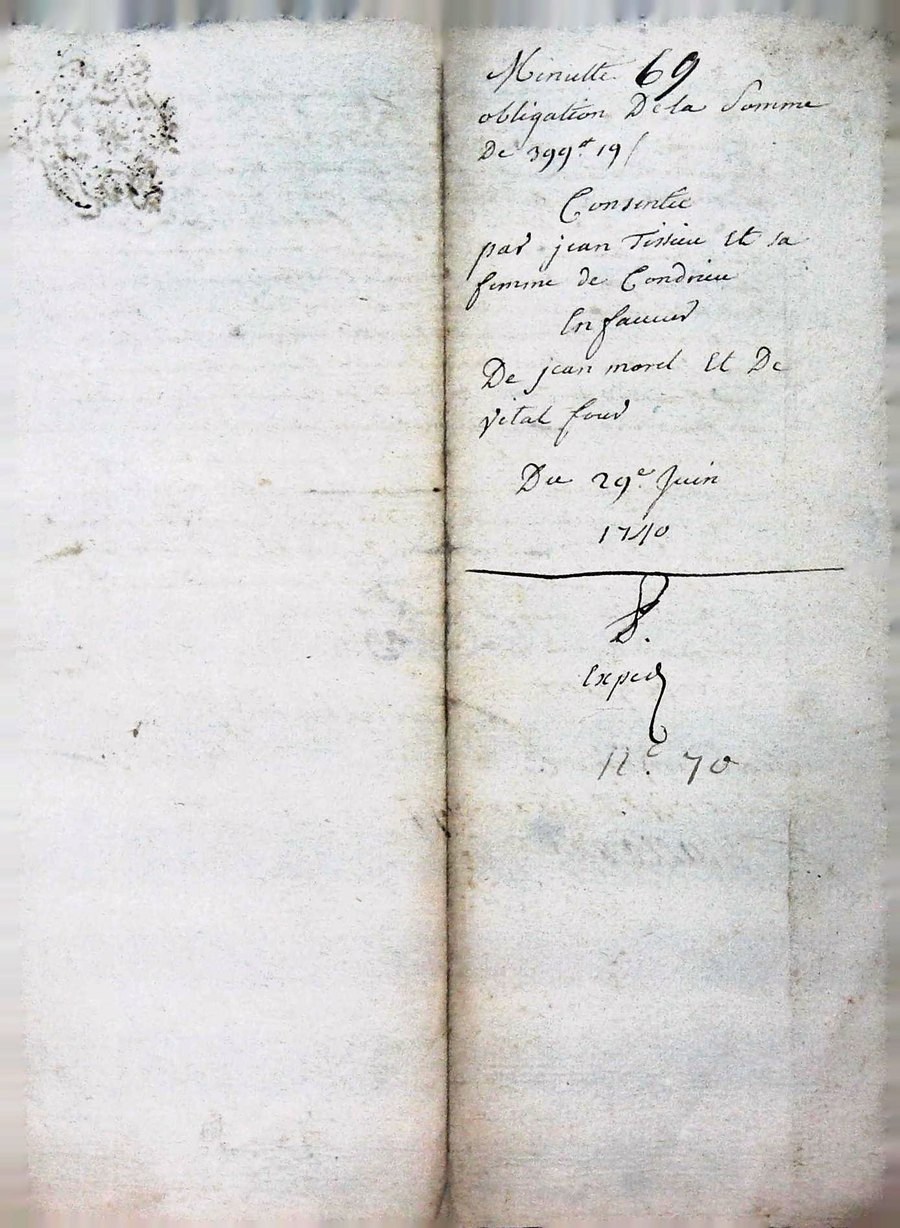 Minutte 69
obligation De la Somme
De 399ᵗᵗ 19 ſ
Consentie
par jean Tissieu Et sa
femme de Condrieu
En faueur
De jean morel Et De
vital four
Du 29ᵉ Juin
1740
Exped
N.º 70